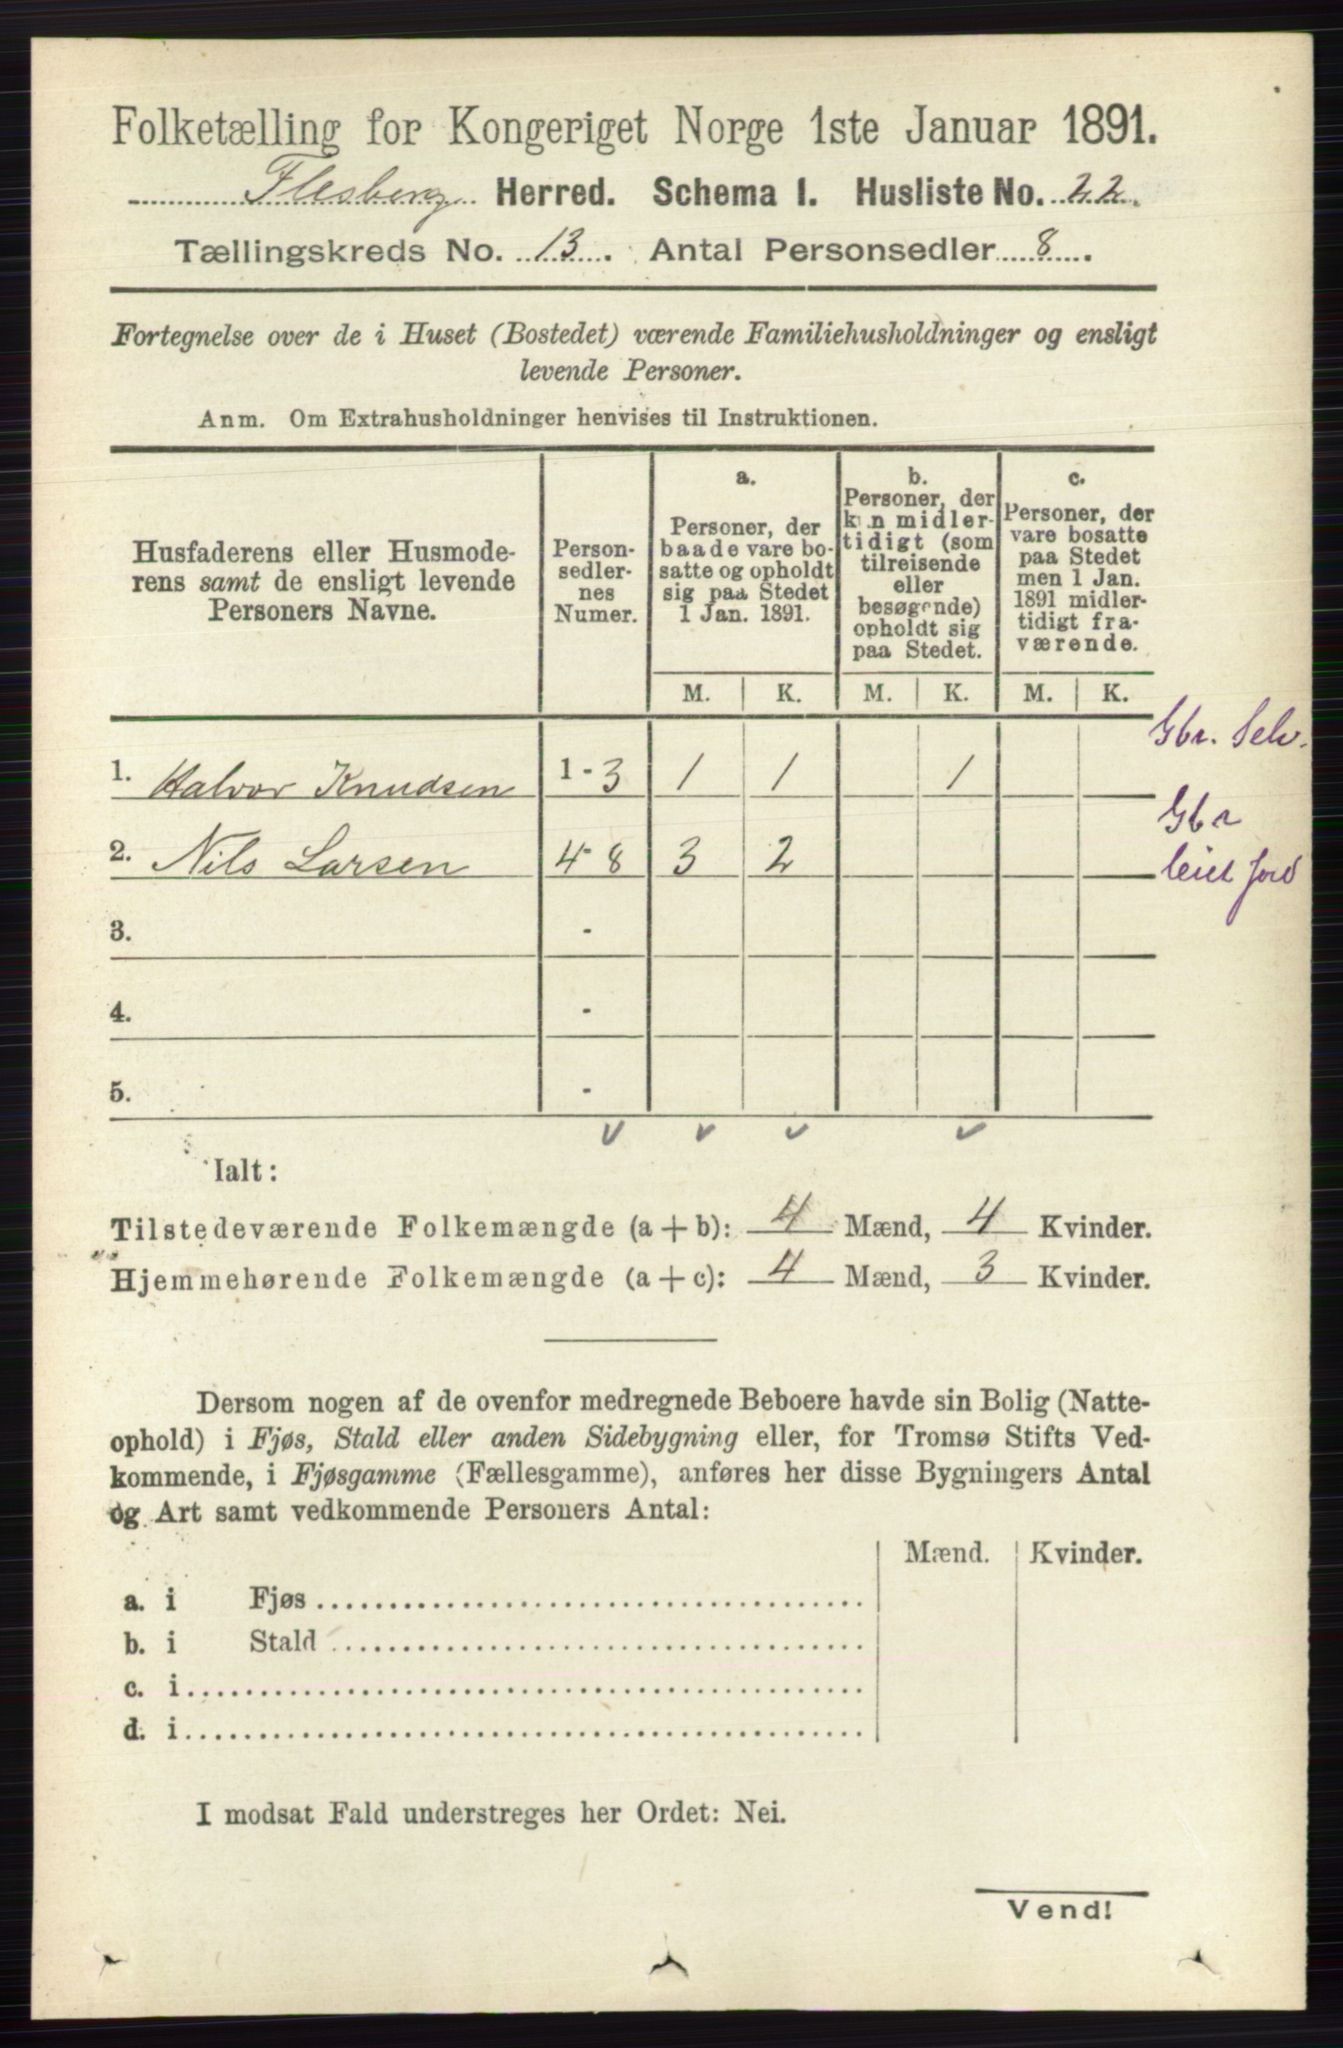 Folketælling for Kongeriget Norge 1ste Januar 1891.
Flesberg Herred. Schema 1. Husliste No. 22.
Tællingskreds No. 13. Antal Personsedler 8.
Fortegnelse over de i Huset (Bostedet) værende Familiehusholdninger og ensligt
levende Personer.
Anm. Om Extrahusholdninger henvises til Instruktionen.
Husfaderens eller Husmode-
rens samt de ensligt levende
Personers Navne.
Person-
sedler-
nes
Numer.
a.
Personer, der
baade vare bo-
satte og opholdt
sig paa Stedet
1 Jan. 1891.
b.
Personer, der
kun midler-
tidigt (som
tilreisende
eller
besøgende)
opholdt sig
paa Stedet.
c.
Personer, der
vare bosatte
paa Stedet
men 1 Jan.
1891 midler-
tidigt fra-
værende.
M. K. M. K. M. K.
1. Halvor Knudsen 1 - 3 1 1 1 Gbr. Selv.
2. Nils Larsen 4 - 8 3 2 Gbr
leiet Jord
3. -
4. -
5. -
Ialt:
Tilstedeværende Folkemængde (a + b): 4 Mænd, 4 Kvinder.
Hjemmehørende Folkemængde (a + c): 4 Mænd, 3 Kvinder.
Dersom nogen af de ovenfor medregnede Beboere havde sin Bolig (Natte-
ophold) i Fjøs, Stald eller anden Sidebygning eller, for Tromsø Stifts Ved-
kommende, i Fjøsgamme (Fællesgamme), anføres her disse Bygningers Antal
og Art samt vedkommende Personers Antal:
Mænd. Kvinder.
a. i Fjøs
b. i Stald
c. i
d. i
I modsat Fald understreges her Ordet: Nei.
Vend!